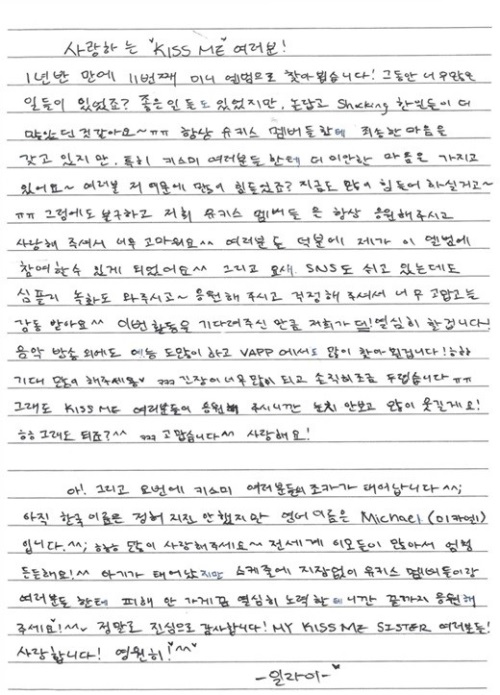 사랑하는 "KISS ME" 여러분!
1년반 만에 11번째 미니 앨범으로 찾아뵙습니다! 그동안 너무많은
일들이 있었죠? 좋은일들도 있었지만, 논잡고 Shocking 한일들이 더
많았던것같아요~ㅠㅠ 항상 유키스 멤버들한테 죄송한 마음을
갖고 있지만, 특히 키스미 여러분들 한테 더 미안한 마음을 가지고
있어요~ 여러분 저 때문에 많이 힘들었죠? 지금도 많이 힘들어 하실거고~
ㅠㅠ 그럼에도 불구하고 저희 유키스 멤버들 은 항상 응원해주시고
사랑해 주셔서 너무 고마워요^^ 여러분들 덕분에 제가 이 앨범에
참여할수 있게 되었어요^^ 그리고 요새 SNS도 쉬고 있는데도
심플리 녹화도 와주시고~ 응원해 주시고 걱정해 주셔서 너무 고맙고는
감동 받아요^^ 이번 활동을 기다려주신 만큼 저희가 더! 열심히 할겁니다!
음악 방송 외에도 예능 도많이 하고 VAPP 에서도 많이 찾아 뵐겁니다! ㅎㅎ
기대 많이 해주세용♥ ㅋㅋㅋ 긴장이너무많이 되고 솔직히조금 두렵습니다 ㅠㅠ
그래도 KISS ME 여러분들이 응원해 주시니깐 눈치 안보고 많이 웃길게요!
ㅎㅎ 그래도 되죠?^^ ㅋㅋㅋ 고맙습니다^^ 사랑해요!
아! 그리고 요번에 키스미 여러분들의 조카가 태어납니다^^;
아직 한국이름은 정해 지진 안했지만 영어 이름은 Michael (미카엘)
입니다.^^; ㅎㅎㅎ 많이 사랑해주세요~ 전세계 이모들이 많아서 엄청
든든해요!^^ 아기가 태어났지만 스케줄에 지장없이 유키스 멤버들이랑
여러분들 한테 피해 안 가게끔 열심히 노력할테니깐 끝까지 응원해
주세요!^^♥ 정말로 진심으로 감사합니다! MY KISS ME SISTER 여러분들!
사랑합니다! 영원히!♥^^♥
-일라이-♥